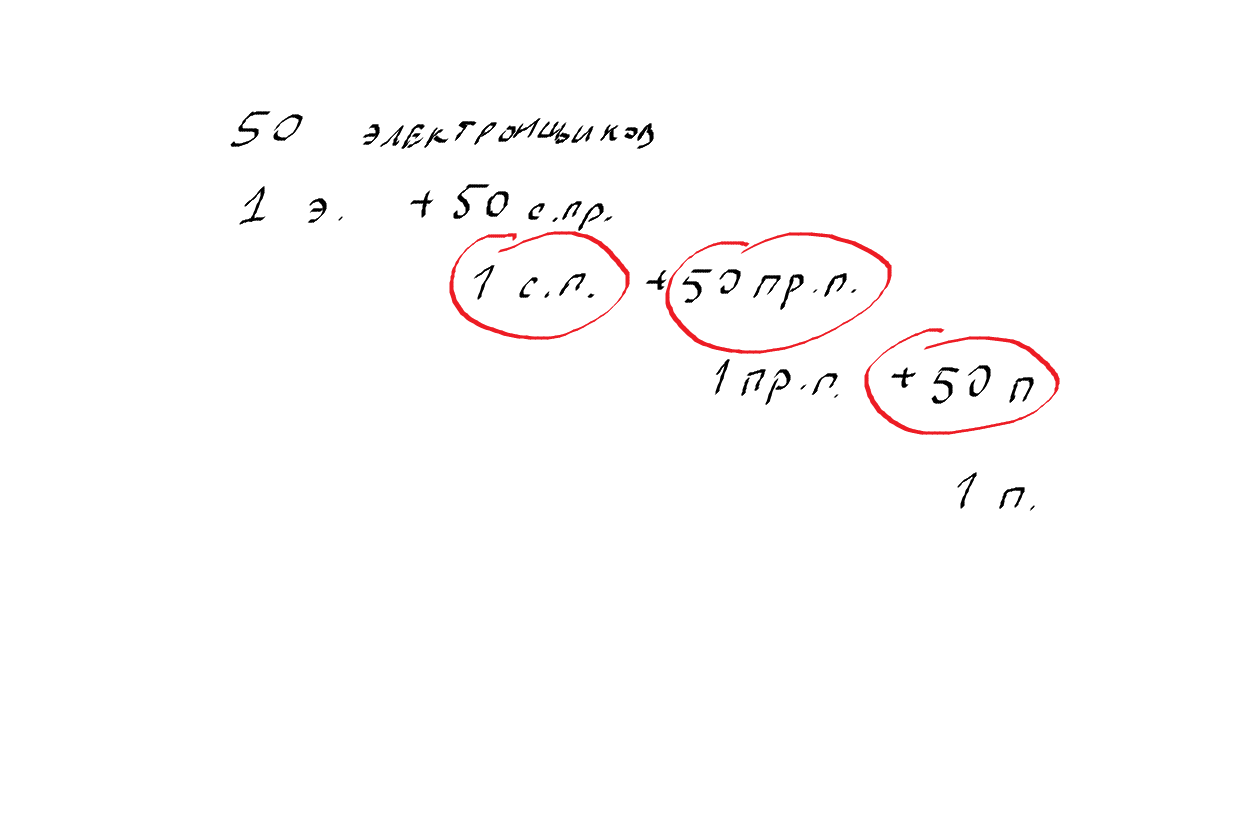 50 электронщиков
1 э. + 50 с.пр.
1 с.п. + 50 пр.п.
1 пр.п. + 50 п
1 п.